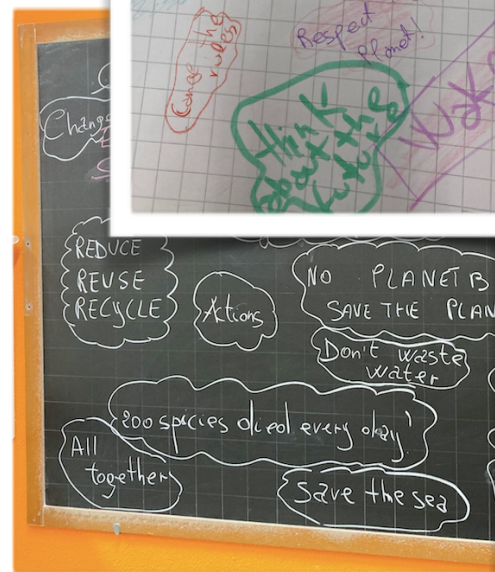 Change the rules
Respect
Planet!
Think
about the
future
Wake
Change
REDUCE
REUSE
RECYCLE
Actions
NO PLANET B
SAVE THE PLAN
Don't waste
water
200 species died every day!
All
together
Save the sea